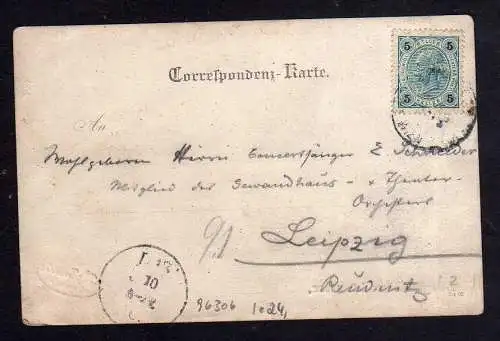 5 5
5 5
Correspondenz-Karte.
An
Wohlgeboren Herrn Concertsänger E Schneider
Mitglied des Gewandhaus- & Theater-
Orchesters
Leipzig
Reudnitz
10
96306 1024,